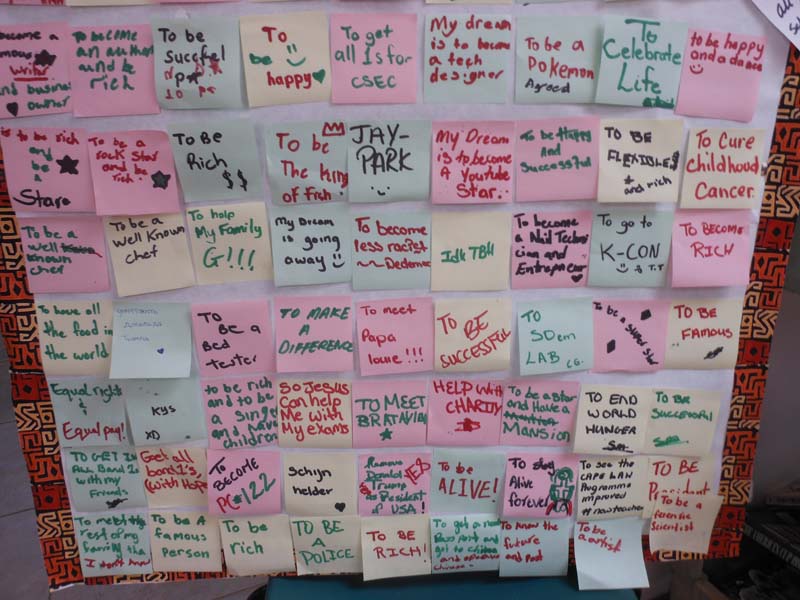 become a
famous
writer
and business
owner
To become
an author
and be
rich
To be
Succfel
To
be
happy
To get
all 1s for
CSEC
My dream
is to become
a tech
designer
To be a
POKEMON
Agreed
To
Celebrate
Life
to be happy
and a dance
is to be rich
and
be a
Star
To be a
rock star
and be
rich
To Be
Rich
$$
To be
The King
of Fish!
JAY-
PARK
My Dream
is to become
A Youtube
Star.
To be Happy
And
Successful
TO BE
FLEXIBLE
and rich
To Cure
Childhood
Cancer
To be
a well
known
chef
To be a
Well Known
chef
To help
My Family
G!!!
My Dream
is going
away
To become
less racist
Idk TBH
To become
a Nail Techni
cian and
Entrepreneur
To go to
K-CON
T.T
TO BECOME
RICH
To have all
the food in
the world
To
Be a
Bed
Tester
TO MAKE
A
DIFFERENCE
To meet
Papa
louie!!!
TO BE
SUCCESSFUL
TO
SDem
LAB
To be
a Super Star
TO BE
FAMOUS
Equal rights
&
Equal pay!
KYS
XD
to be rich
and to be
a singer
and have
children
So Jesus
can help
Me with
My exams
TO MEET
BRATAVIA
HELP With
CHARITY
To be a Star
and Have a
MANSION
TO END
WORLD
HUNGER
TO BE
SUCCESSFUL
TO GET IN
ALL Band 1s
with my
Friends
Get all
band 1's
(with Hope)
To
BECOME
PC#122
Schijn
helder
Remove
Donald
Trump
as President
of USA!
YEP
To be
ALIVE!
To stay
Alive
forever
To see the
CAPE LAW
Programme
improved
#newteacher
TO BE
President
To be a
forensic
Scientist
To meet the
rest of my
family tha
I don't know
To be A
famous
person
To be
rich
TO BE
A
POLICE
To
BE
RICH!
To get a new
Pass port and
go to
To know the
future
and past
To be
a artist